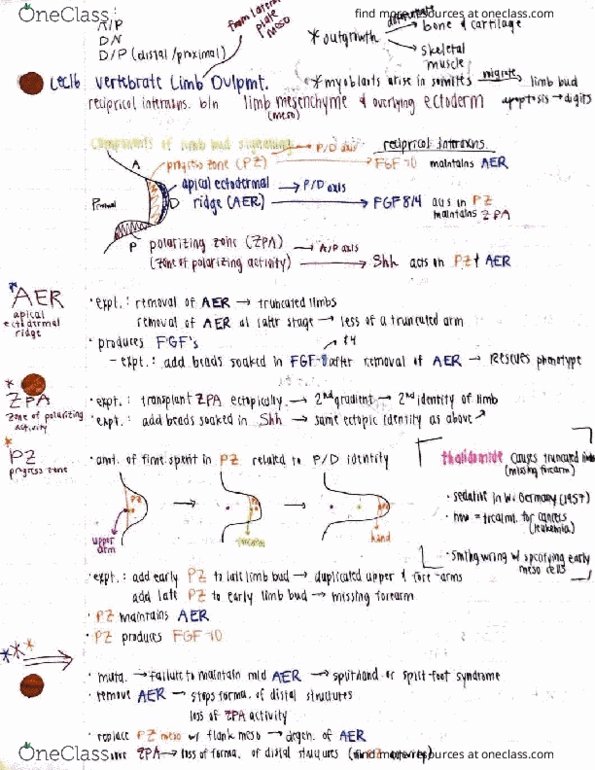 OneClass
find more resources at oneclass.com
A/P
D/V
D/P (distal/proximal)
from lateral plate meso
* outgrowth
bone & cartilage
skeletal muscle
Lec16 Vertebrate Limb Dvlpmt.
* myoblasts arise in somites migrate limb bud
reciprical interaxns. b/n limb mesenchyme & overlying ectoderm
(meso)
apoptosis → digits
Components of limb bud signaling
P/D axis
reciprical interaxns.
A
progress zone (PZ)
FGF-10 maintains AER
Proximal
D
apical ectodermal ridge (AER)
P/D axis
FGF 8/4
acts in PZ
maintains ZPA
P
polarizing zone (ZPA)
A/P axis
(zone of polarizing activity)
Shh acts on PZ & AER
AER
apical ectodermal ridge
• expt.: removal of AER → truncated limbs
removal of AER at later stage → less of a truncated arm
• produces FGF's
8/4
- expt.: add beads soaked in FGF-8 after removal of AER → rescues phenotype
*
ZPA
zone of polarizing activity
• expt.: transplant ZPA ectopically → 2nd gradient → 2nd identity of limb
• expt.: add beads soaked in Shh → same ectopic identity as above
*
PZ
progress zone
• amt. of time spent in PZ related to P/D identity
thalidomide causes truncated limbs
(missing forearm)
• sedative in W. Germany (1957)
• now = treatmt. for cancers
(leukemia)
• smthg wrong w/ specifying early meso cells
upper arm
forearm
hand
• expt.: add early PZ to late limb bud → duplicated upper & fore-arms
add late PZ to early limb bud → missing forearm
• PZ maintains AER
• PZ produces FGF-10
***
• muta. → failure to maintain mid AER → splithand or split-foot syndrome
• remove AER → stops forma. of distal structures
loss of ZPA activity
• replace PZ meso w/ flank meso → degen. of AER
ZPA → loss of forma. of distal structures
OneClass
find more resources at oneclass.com